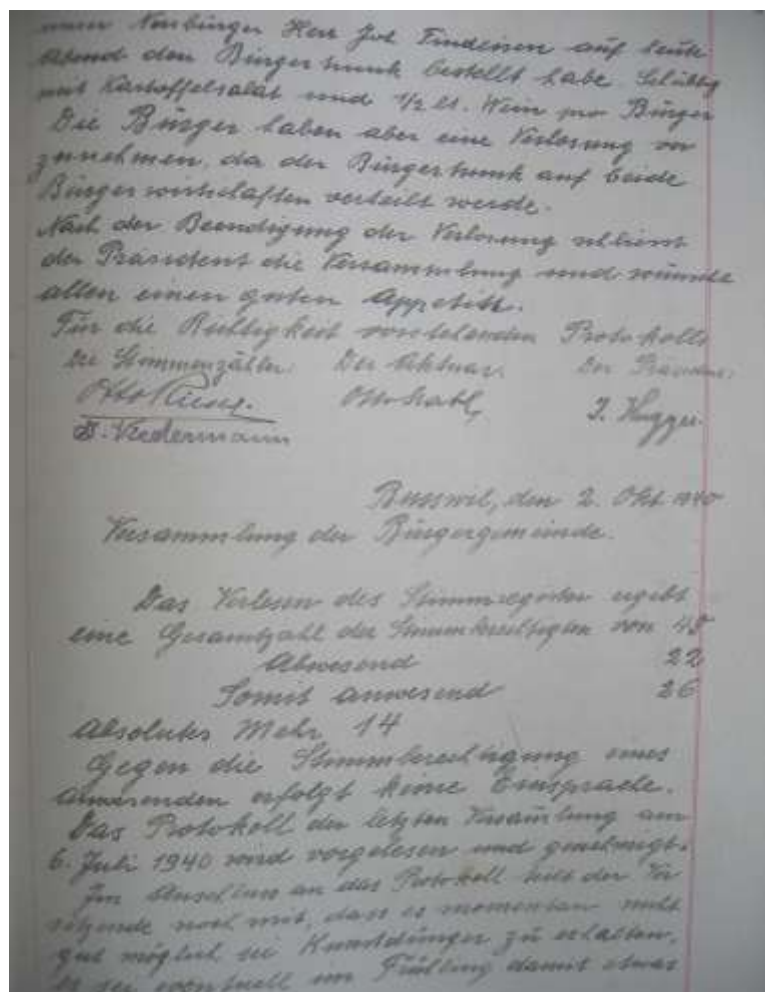 Neubürger Herr Joh Findeisen auf heute
Abend den Bürgertrunk bestellt habe. Schüblig
mit Kartoffelsalat und 1/2 lt. Wein pro Bürger
Die Bürger haben aber eine Verlosung vor
zunehmen, da der Bürgertrunk auf beide
Bürgerwirtschaften verteilt werde.
Nach der Beendigung der Verlosung schliesst
der Präsident die Versammlung und wünscht
allen einen guten Appetitt.
Für die Richtigkeit vorstehenden Protokolls
Die Stimmenzähler: Der Aktuar: Der Präsident:
Otto Otto J. Hugger.
Wiedermann
Busswil, den 2. Okt 1940
Versammlung der Bürgergemeinde.
Das Verlesen des Stimmregister ergibt
eine Gesamtzahl der Stimmberechtigten von 48
Abwesend 22
Somit anwesend 26
Absolutes Mehr 14
Gegen die Stimmberechtigung eines
Anwesenden erfolgt keine Einsprache.
Das Protokoll der letzten Versamlung am
6. Juli 1940 wird vorgelesen und genehmigt.
Im Anschluss an das Protokoll teilt der Vor
sitzende noch mit, dass es momentan nicht
gut möglich sei Kunstdünger zu erhalten,
es sei eventuell im Frühling damit etwas